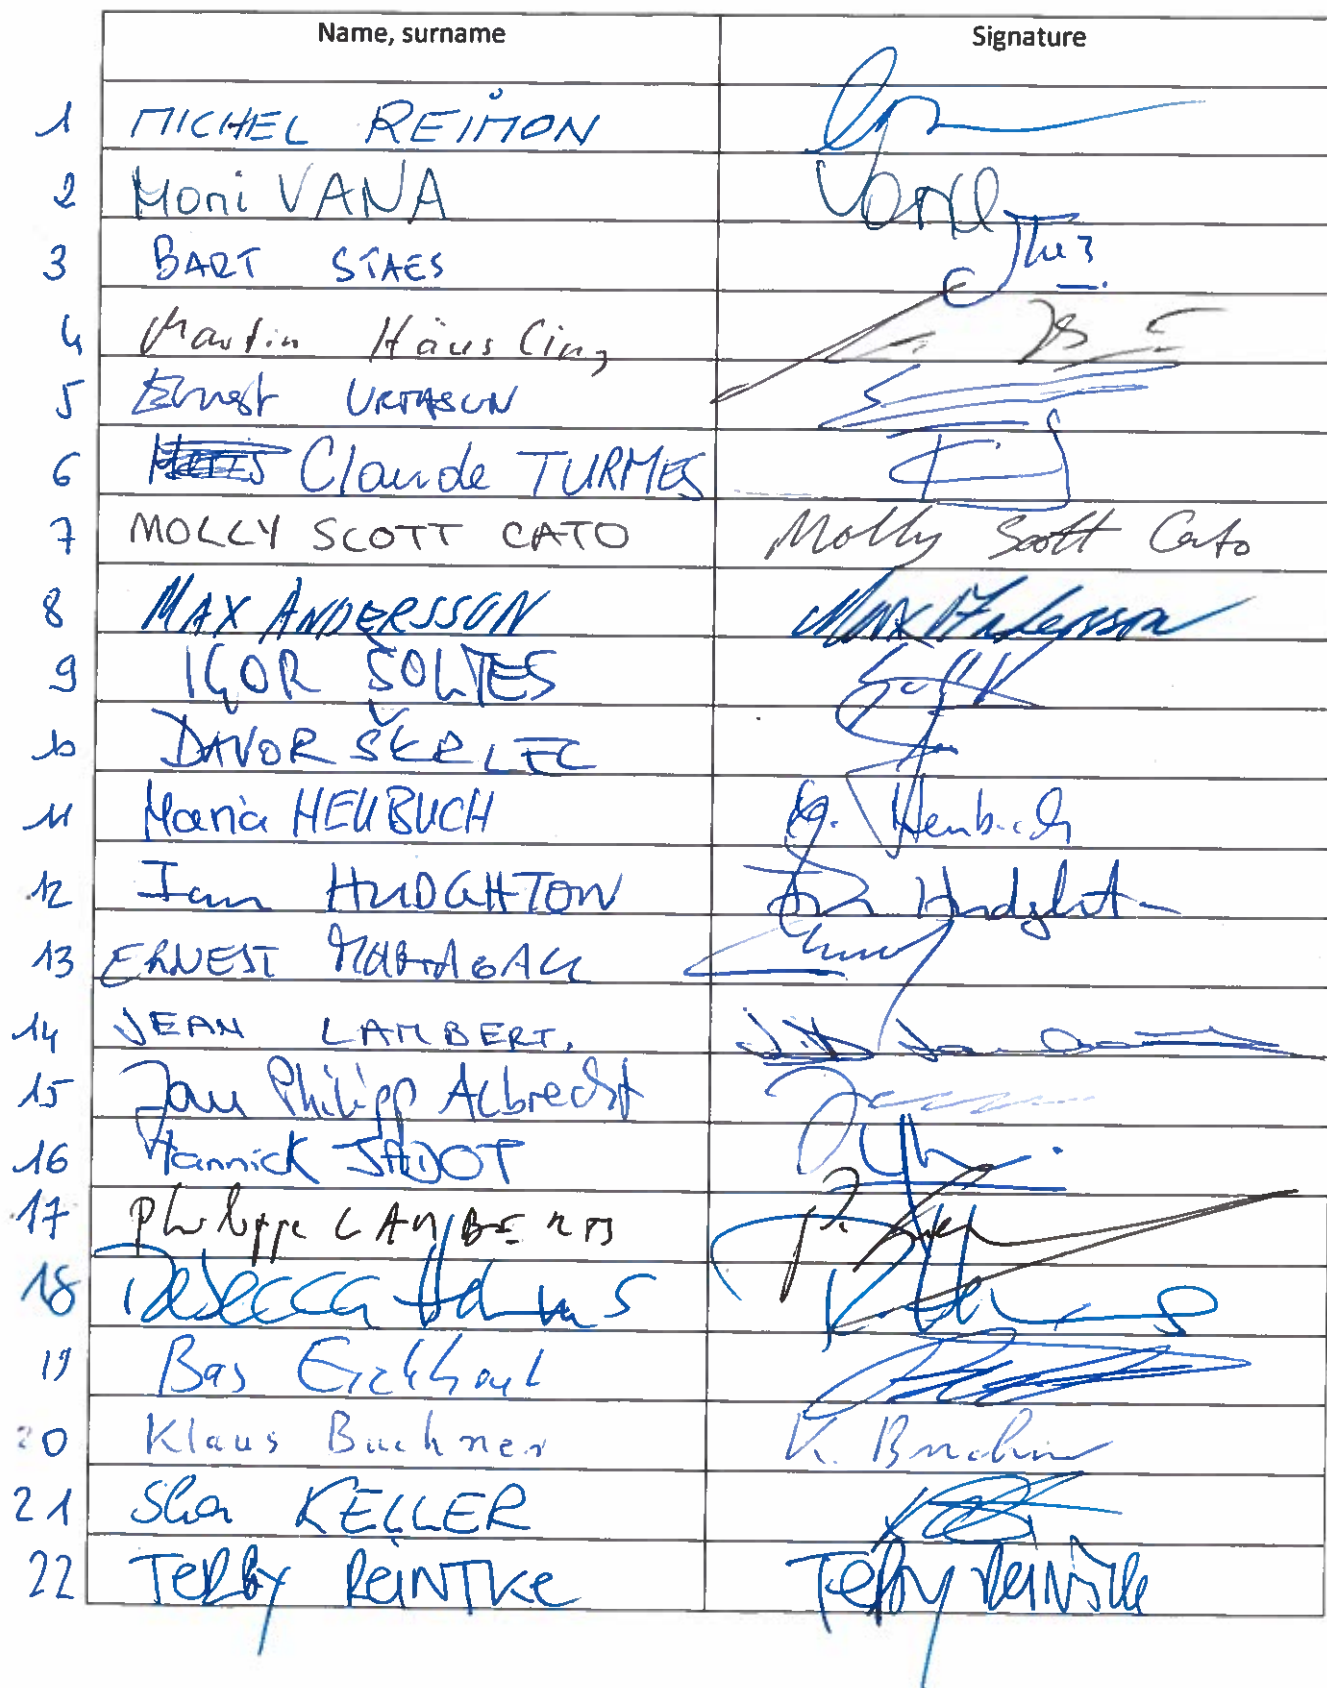 Name, surname Signature
1 MICHEL REIMON
2 Moni VANA Vana
3 BART STAES
4 Martin Häusling
5 Ernest URTASUN
6 Claude TURMES
7 MOLLY SCOTT CATO Molly Scott Cato
8 MAX ANDERSSON Max Andersson
9 IGOR ŠOLTES
10 DAVOR ŠKRLEC
11 Maria HEUBUCH M. Heubuch
12 Ian HUDGHTON Ian Hudghton
13 ERNEST MARAGALL
14 JEAN LAMBERT.
15 Jan Philipp Albrecht
16 Yannick JADOT
17 Philippe LAMBERTS
18 Rebecca Harms
19 Bas Eickhout
20 Klaus Buchner K. Buchner
21 Ska KELLER
22 TERRY REINTKE Terry Reintke